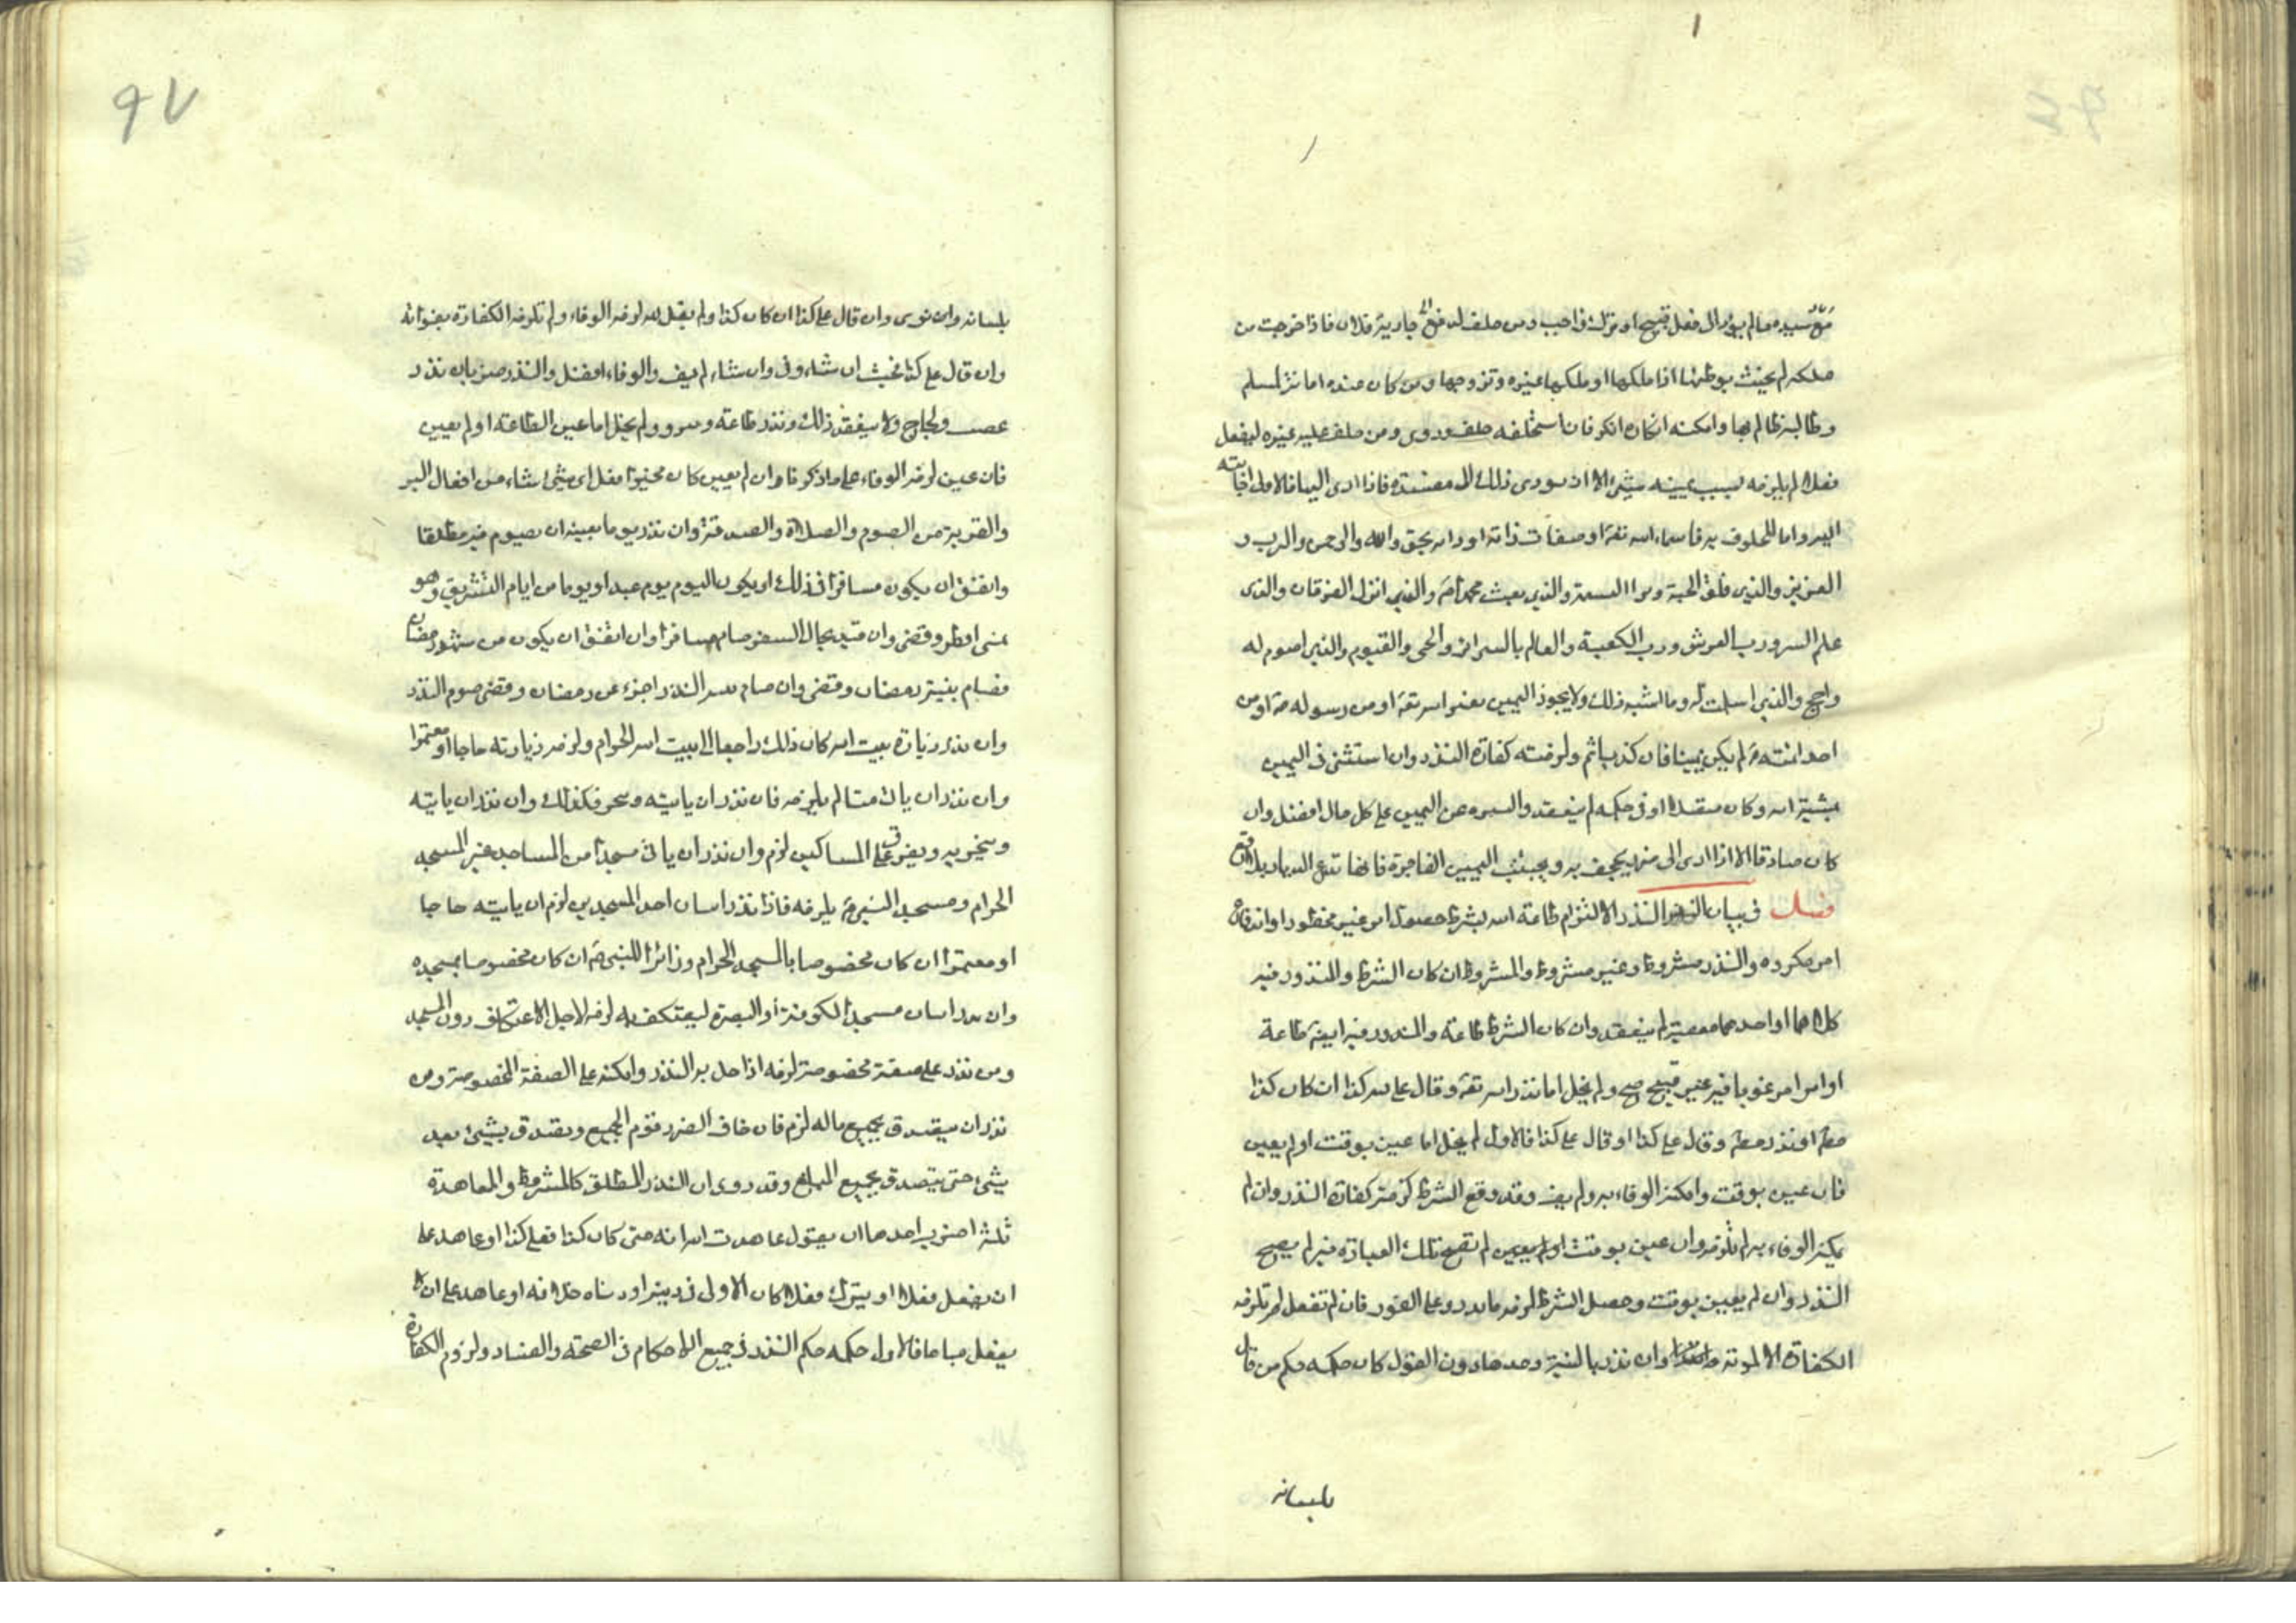 مع سيده ما لم يؤد الى فعل قبيح او ترك واجب ومن حلف لا جارية فلان فاذا خرجت من
ملكه لم يحنث بوطئها اذا ملكها او ملكها غيره وتزوجها ومن كان عنده امانة لمسلم
وطالبه ظالم بها وامكنه انكاره انكر فان استحلفه حلف وروى ومن حلف عليه غيره ليفعل
فعلا لم يلزمه بسبب يمينه شئ الا ان يودى ذلك الى مفسدة فاذا ادى اليها فالاولى اجابته
اليه واما المحلوف به فاسماء الله تعه او صفات ذاته او الله بحق والله والرحمن والرب و
العزيز والذى فلق الحبة وبرا النسمة والذى بعث محمدا ص والذى انزل الفرقان والذى
علم السر ورب العرش ورب الكعبة والعالم بالسرائر والحى والقيوم والذى اصوم له
واحج والذى اسلمت له وما اشبه ذلك ولا يجوز اليمين بغير الله تعه او من رسوله ص او من
احد ائمته ع لم يكن يمينا فان كذب اثم ولزمته كفارة النذر وان استثنى فى اليمين
بمشية الله وكان متصلا او فى حكمه لم ينعقد والسره عن اليمين على كل حال افضل وان
كان صادقا الا اذا ادى الى ضرر يجحف به ويجتنب اليمين الفاجرة فانها تدع الديار بلاقع
فصل فى بيان النذر النذر الالتزام طاعة الله بشرط حصول امر غير محظور او اندفاع
امر مكروه والنذر مشروط وغير مشروط والمشروط ان كان الشرط والمنذور فيه
كلاهما او احدهما معصية لم ينعقد وان كان الشرط طاعة والمنذور فيه ايضه طاعة
او امر مرغوبا فيه غير قبيح صح ولم يخل اما نذر الله تعه وقال على لله كذا ان كان كذا
مطه او نذر مطه وقال على كذا او قال على كذا فالاول لم يخل اما عين بوقت او لم يعين
فان عين بوقت وامكنه الوفاء به ولم يف وقد وقع الشرط لزمته كفارة النذر وان لم
يمكنه الوفاء به لم تلزمه وان عين بوقت او لم يعين لم تصح تلك العبادة فيه لم يصح
النذر وان لم يعين بوقت وحصل الشرط لزمه ما نذر وعلى الفور فان لم تفعل لم تلزمه
الكفارة الا لموته وان نذر بالنية وحدها دون القول كان حكمه حكم من قال
بلسانه
٩٧
بلسانه وان نوى وان قال على كذا ان كان كذا ولم يقل لله لزمه الوفاء ولم تلزمه الكفارة بفواته
وان قال على كذا فحسب ان شاء وفى وان شاء لم يف والوفاء افضل والنذر ضربان نذر
غضب ولجاج ولا ينعقد ذلك ونذر طاعة ولم يخل اما عين الطاعة او لم يعين
فان عين لزمه الوفاء على ما ذكرنا وان لم يعين كان مخيرا فعل اى شئ شاء من افعال البر
والقربة من الصوم والصلاة والصدقة وان نذر يوما بعينه ان يصوم فيه مطلقا
واتفق ان يكون مسافرا فى ذلك او يكون اليوم يوم عيد او يوما من ايام التشريق وهو
بمنى افطر وقضى وان قيد بحال السفر صام مسافرا وان اتفق ان يكون من شهر رمضان
فصام بنية رمضان وقضى وان صام النذر اجزء عن رمضان وقضى صوم النذر
وان نذر زيارة بيت الله كان ذلك راجعا الى بيت الله الحرام ولزمه زيارته حاجا او معتمرا
وان نذر ان ياتى لم يلزمه فان نذر ان ياتيه وينحر فكذلك وان نذر ان ياتيه
وينحر به ويفرق على المساكين لزم وان نذر ان ياتى مسجدا من المساجد غير المسجد
الحرام ومسجد النبى ص يلزمه فاذا نذر اتيان احد المسجدين لزم ان ياتيه حاجا
او معتمرا ان كان مخصوصا بالمسجد الحرام وزائرا للنبى ص ان كان مخصوصا بمسجده
وان نذر اتيان مسجد الكوفة او البصرة ليعتكف به لزمه لاجل الاعتكاف دون المسجد
ومن نذر على صفة مخصوصة لزمه اذا حل به النذر وامكنه على الصفة المخصوصة ومن
نذر ان يتصدق بجميع ماله لزم فان خاف الضرر قوم الجميع وتصدق بشئ بعد
شئ حتى يتصدق بجميع المبلغ وقد روى ان النذر المطلق كالمشروط والمعاهدة
ثلثة اضرب احدها ان يقول عاهدت الله انه متى كان كذا فعلى كذا او عاهد على
ان يفعل فعلا او يترك فعلا كان الاولى فى دينه او دنياه خلافه او عاهد على ان لا
يفعل مباحا فالاول حكمه حكم النذر فى جميع الاحكام فى الصحة والفساد ولزوم الكفارة